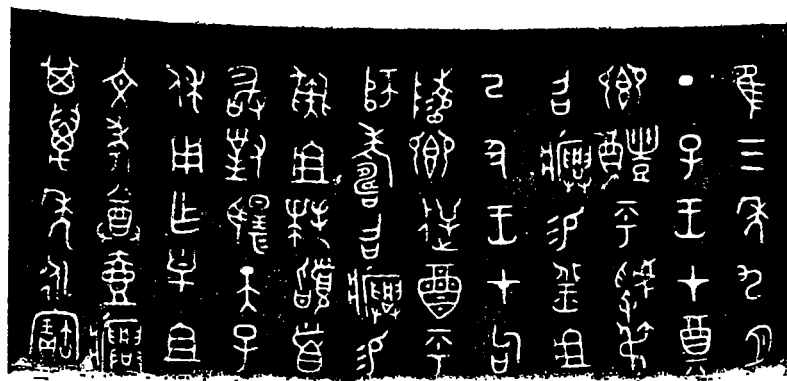 隹三年九月
丁子王才奠
鄉醴乎虢弔
召𤼈易羔俎
己丑王才句
陵鄉逆酉乎
師壽召𤼈易
彘俎拜𩒨首
敢對揚天子
休用乍皇且
文考尊壺𤼈
其萬年永寶